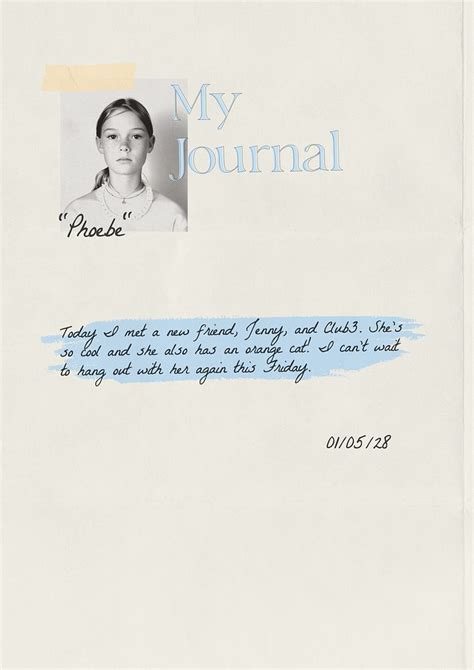 My
Journal
"Phoebe"
Today I met a new friend, Jenny, and Club3. She's
so cool and she also has an orange cat! I can't wait
to hang out with her again this Friday.
01/05/28